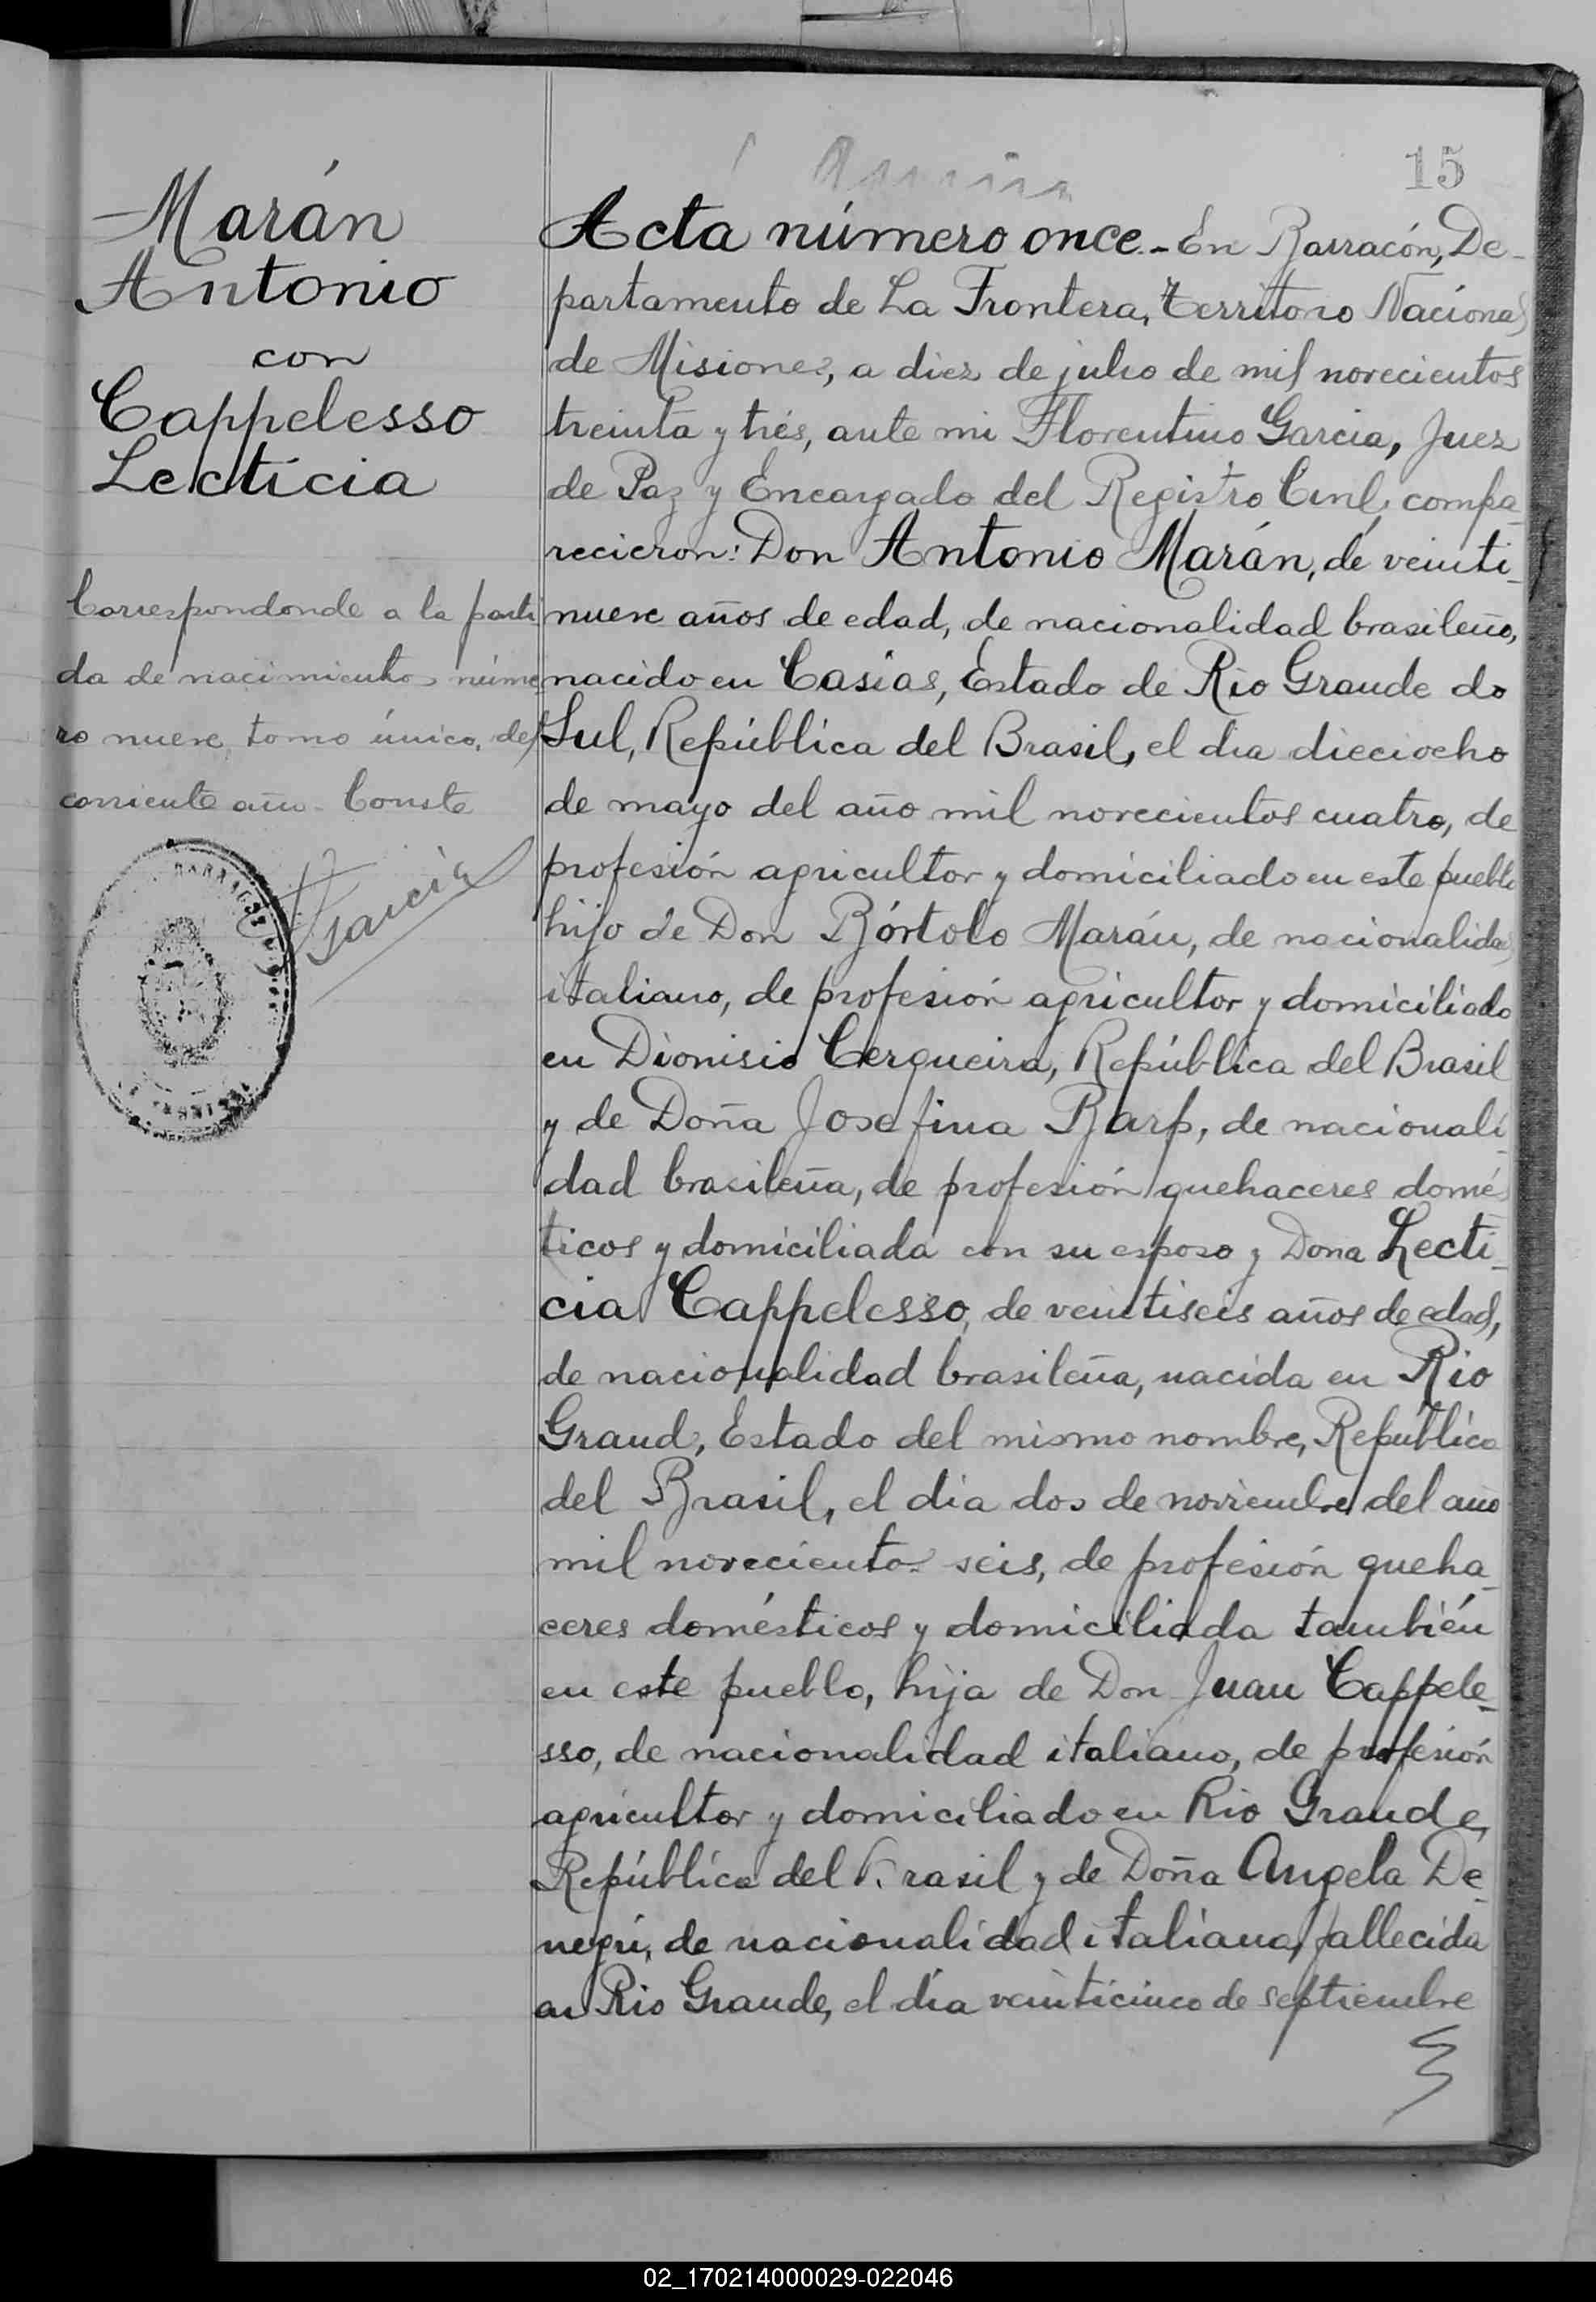 15
Marán
Antonio
con
Cappelesso
Lecticia
Correspondonde a la parti
da de nacimiento núme
ro nueve, tomo único, del
corriente año - Conste
FGarcia
Acta número once. - En Barracón, De-
partamento de La Frontera, territorio Nacional
de Misiones, a diez de julio de mil novecientos
treinta y trés, ante mi Florentino Garcia, Juez
de Paz y Encargado del Registro Civil, compa-
recieron: Don Antonio Marán, de veinti-
nueve años de edad, de nacionalidad brasileño,
nacido en Casías, Estado de Rio Grande do
Sul, República del Brasil, el dia dieciocho
de mayo del año mil novecientos cuatro, de
profesión agricultor y domiciliado en este pueblo
hijo de Don Bórtolo Marán, de nacionalidad
italiano, de profesión agricultor y domiciliado
en Dionisio Cerqueira, República del Brasil
y de Doña Josefina Barp, de nacionali-
dad brasileña, de profesión quehaceres domés
ticos y domiciliada con su esposo y Doña Lecti-
cia Cappelesso, de veintiseis años de edad,
de nacionalidad brasileña, nacida en Rio
Grand, Estado del mismo nombre, República
del Brasil, el dia dos de noviembre del año
mil novecientos seis, de profesión queha-
ceres domésticos y domiciliada también
en este pueblo, hija de Don Juan Cappele-
sso, de nacionalidad italiano, de profesión
agricultor y domiciliado en Rio Grande,
República del Brasil y de Doña Angela De-
negri, de nacionalidad italiana, fallecida
en Rio Grande, el día veinticinco de septiembre
02_170214000029-022046